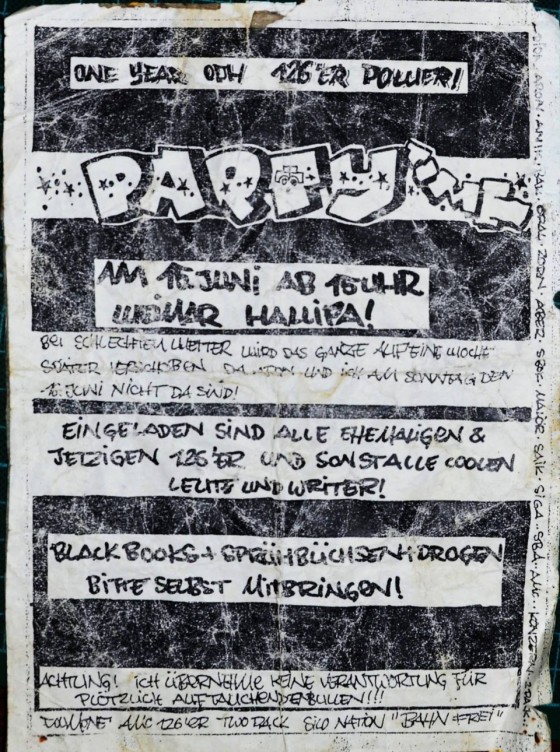 ONE YEAR ODH 126'ER POWER!
PARTY TIME
AM 15. JUNI AB 15 UHR
WEIMAR HALLIFA!
BEI SCHLECHTEM WETTER WIRD DAS GANZE AUF EINE WOCHE
SPÄTER VERSCHOBEN DA ATON UND ICH AM SONNTAG DEN
JUNI NICHT DA SIND!
EINGELADEN SIND ALLE EHEMALIGEN &
JETZIGEN 126'ER UND SONST ALLE COOLEN
LEUTE UND WRITER!
BLACKBOOKS + SPRÜHBÜCHSEN + DROGEN
BITTE SELBST MITBRINGEN!
ACHTUNG! ICH ÜBERNEHME KEINE VERANTWORTUNG FÜR
PLÖTZLICH AUFTAUCHENDEN BULLEN!!!
126'ER TWO PACK SICO NATION "BAHN FREI"